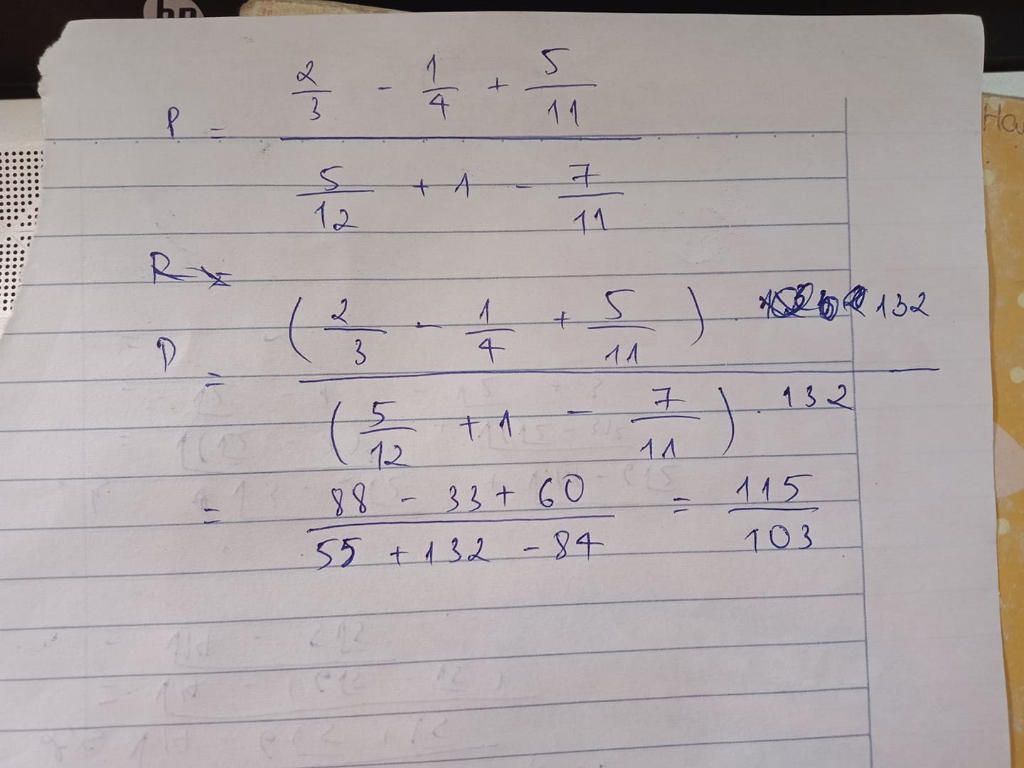 hp
P = \frac{\frac{2}{3} - \frac{1}{4} + \frac{5}{11}}{\frac{5}{12} + 1 - \frac{7}{11}}
R
P = \frac{(\frac{2}{3} - \frac{1}{4} + \frac{5}{11}) \cdot 132}{(\frac{5}{12} + 1 - \frac{7}{11}) \cdot 132}
= \frac{88 - 33 + 60}{55 + 132 - 84} = \frac{115}{103}